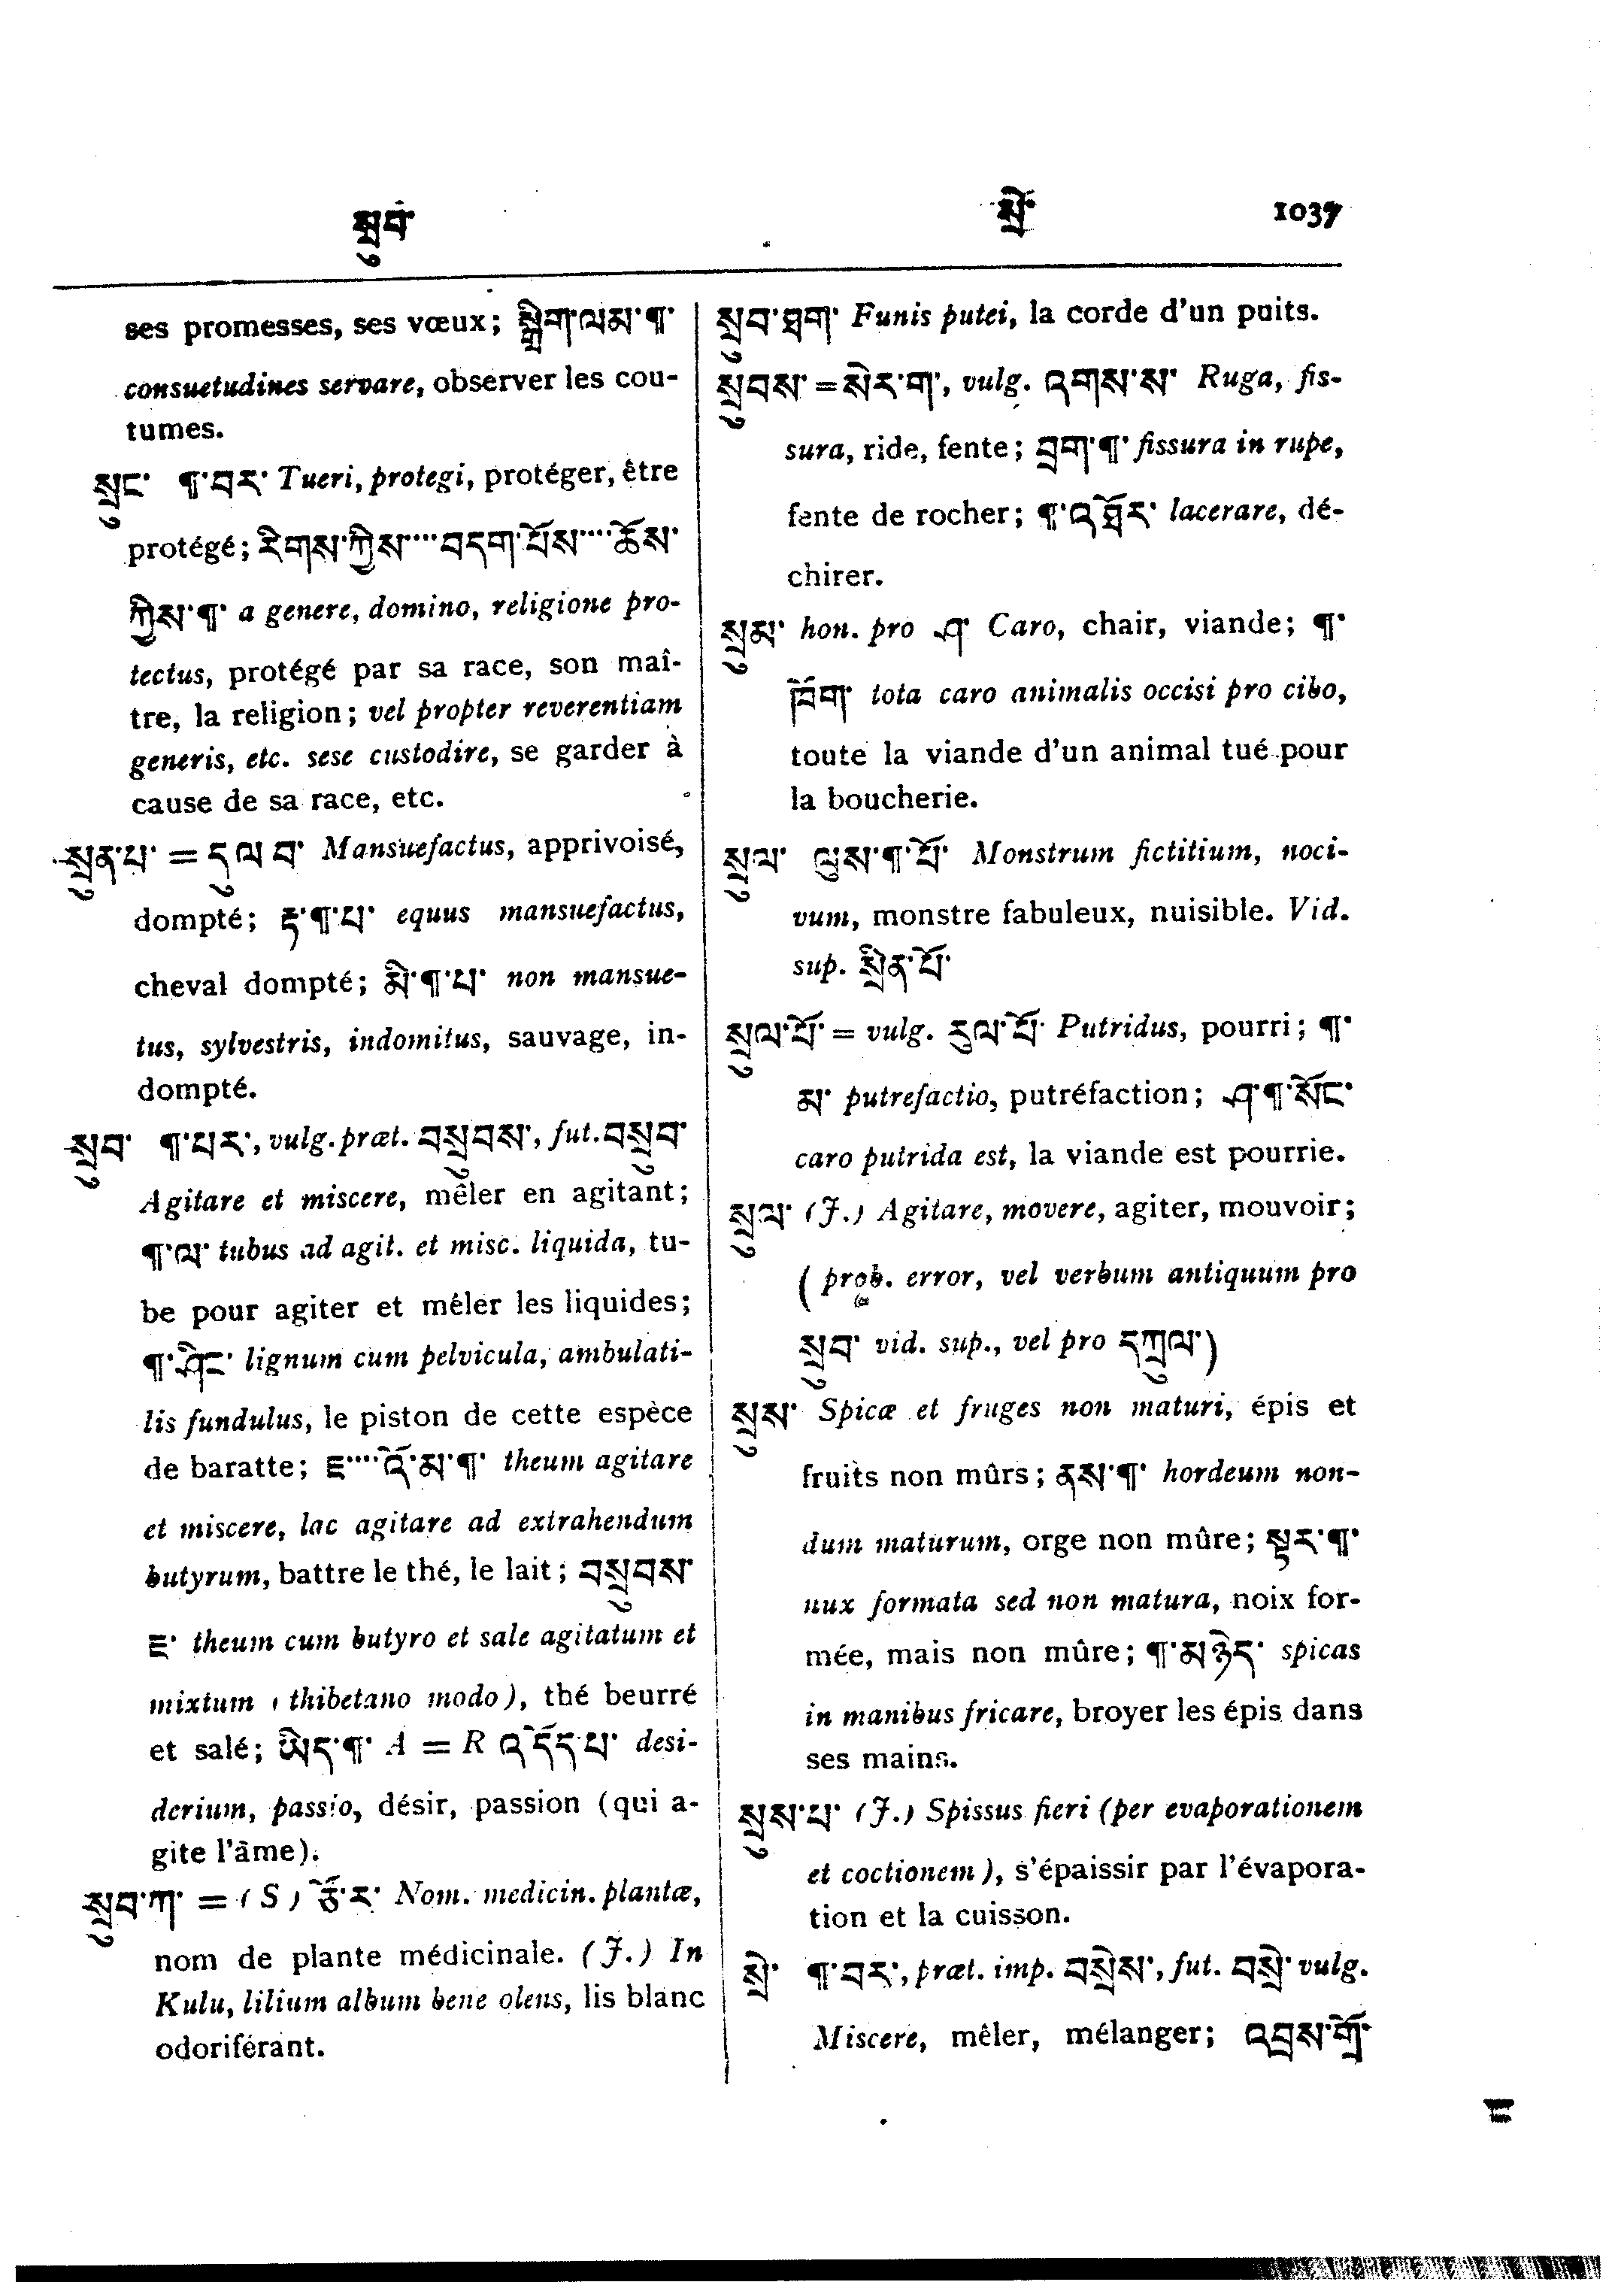 སྲུབ་
སྲེ་
1037
ses promesses, ses vœux; སྒྲིག་ལམ་¶་
consuetudines servare, observer les cou-
tumes.
སྲུང་ ¶་བར་ Tueri, protegi, protéger, être
protégé; རིགས་ཀྱིས་····བདག་པོས་····ཆོས་
ཀྱིས་¶་ a genere, domino, religione pro-
tectus, protégé par sa race, son maî-
tre, la religion; vel propter reverentiam
generis, etc. sese custodire, se garder à
cause de sa race, etc.
སྲུན་པ་ = དུལ་བ་ Mansuefactus, apprivoisé,
dompté; རྟ་¶་པ་ equus mansuefactus,
cheval dompté; མི་¶་པ་ non mansue-
tus, sylvestris, indomitus, sauvage, in-
dompté.
སྲུབ་ ¶་པར་, vulg. præt. བསྲུབས་, fut. བསྲུབ་
Agitare et miscere, mêler en agitant;
¶་ལ་ tubus ad agit. et misc. liquida, tu-
be pour agiter et mêler les liquides;
¶་ཤིང་ lignum cum pelvicula, ambulati-
lis fundulus, le piston de cette espèce
de baratte; ཇ་····འོ་མ་¶་ theum agitare
et miscere, lac agitare ad extrahendum
butyrum, battre le thé, le lait; བསྲུབས་
ཇ་ theum cum butyro et sale agitatum et
mixtum (thibetano modo), thé beurré
et salé; ཡིད་¶་ A = R འདོད་པ་ desi-
derium, passio, désir, passion (qui a-
gite l'âme).
སྲུབ་ཀ་ = (S) ཙོ་ར་ Nom. medicin. plantæ,
nom de plante médicinale. (J.) In
Kulu, lilium album bene olens, lis blanc
odoriférant.
སྲུབ་ཐག་ Funis putei, la corde d'un puits.
སྲུབས་ = སེར་ག་, vulg. འགས་ས་ Ruga, fis-
sura, ride, fente; བྲག་¶་ fissura in rupe,
fente de rocher; ¶་འཐོར་ lacerare, dé-
chirer.
སྲུམ་ hon. pro ཤ་ Caro, chair, viande; ¶་
ཁོག་ tota caro animalis occisi pro cibo,
toute la viande d'un animal tué pour
la boucherie.
སྲུལ་ ལུས་¶་པོ་ Monstrum fictitium, noci-
vum, monstre fabuleux, nuisible. Vid.
sup. སྲིན་པོ་
སྲུལ་པོ་ = vulg. རུལ་པོ་ Putridus, pourri; ¶་
མ་ putrefactio, putréfaction; ཤ་¶་སོང་
caro putrida est, la viande est pourrie.
སྲུལ་ (J.) Agitare, movere, agiter, mouvoir;
( prob. error, vel verbum antiquum pro
སྲུབ་ vid. sup., vel pro དཀྲུལ་)
སྲུས་ Spicæ et fruges non maturi, épis et
fruits non mûrs; ནས་¶་ hordeum non-
dum maturum, orge non mûre; སྟར་¶་
nux formata sed non matura, noix for-
mée, mais non mûre; ¶་མཉེད་ spicas
in manibus fricare, broyer les épis dans
ses mains.
སྲུས་པ་ (J.) Spissus fieri (per evaporationem
et coctionem), s'épaissir par l'évapora-
tion et la cuisson.
སྲེ་ ¶་བར་, præt. imp. བསྲེས་, fut. བསྲེ་ vulg.
Miscere, mêler, mélanger; འབྲས་གྲོ་